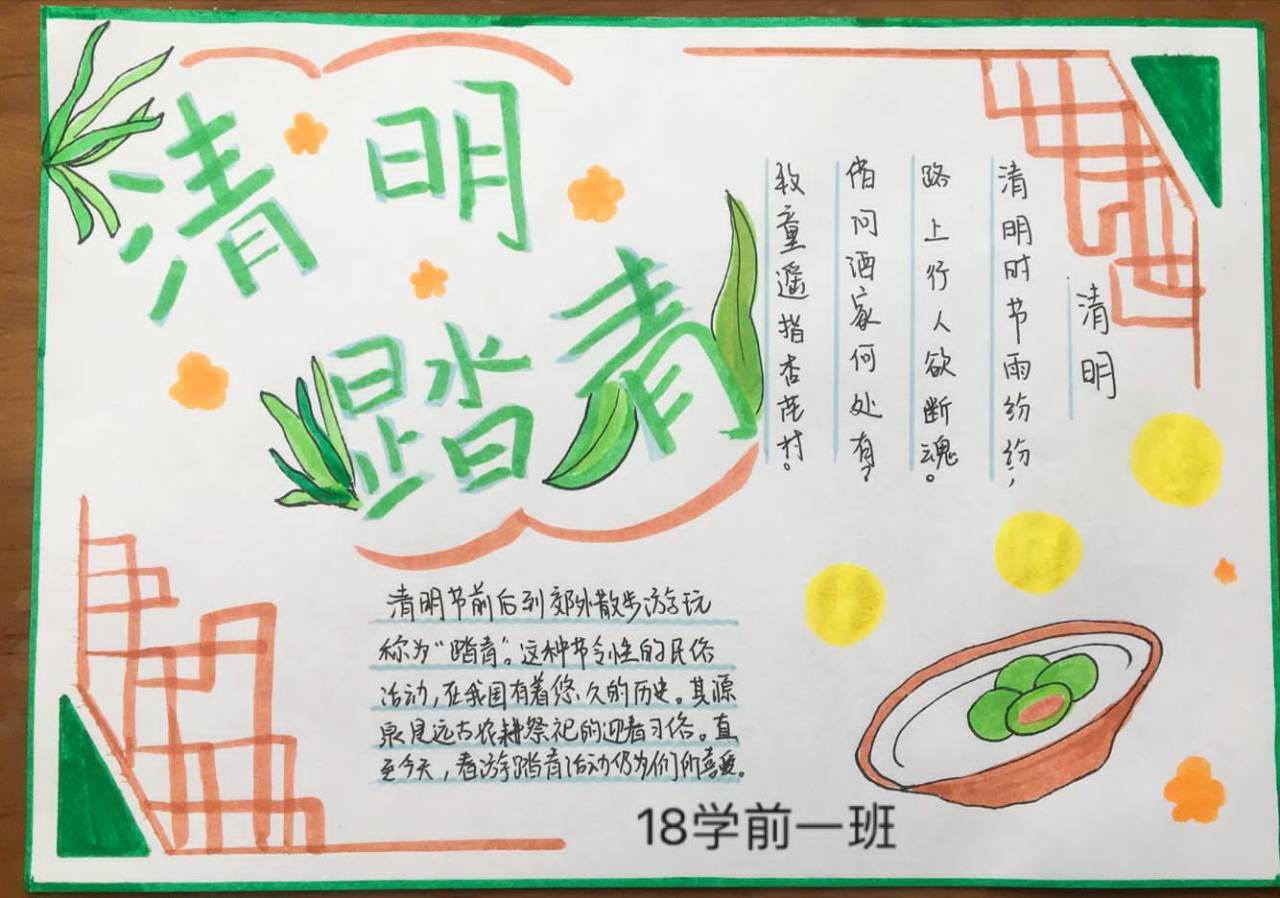 清明
踏青
清明
清明时节雨纷纷，
路上行人欲断魂。
借问酒家何处有？
牧童遥指杏花村。
清明节前后到郊外散步游玩
称为“踏青”。这种节令性的民俗
活动，在我国有着悠久的历史。其源
泉是远古农耕祭祀的迎春习俗。直
至今天，春游踏青活动仍为们所喜爱。
18学前一班